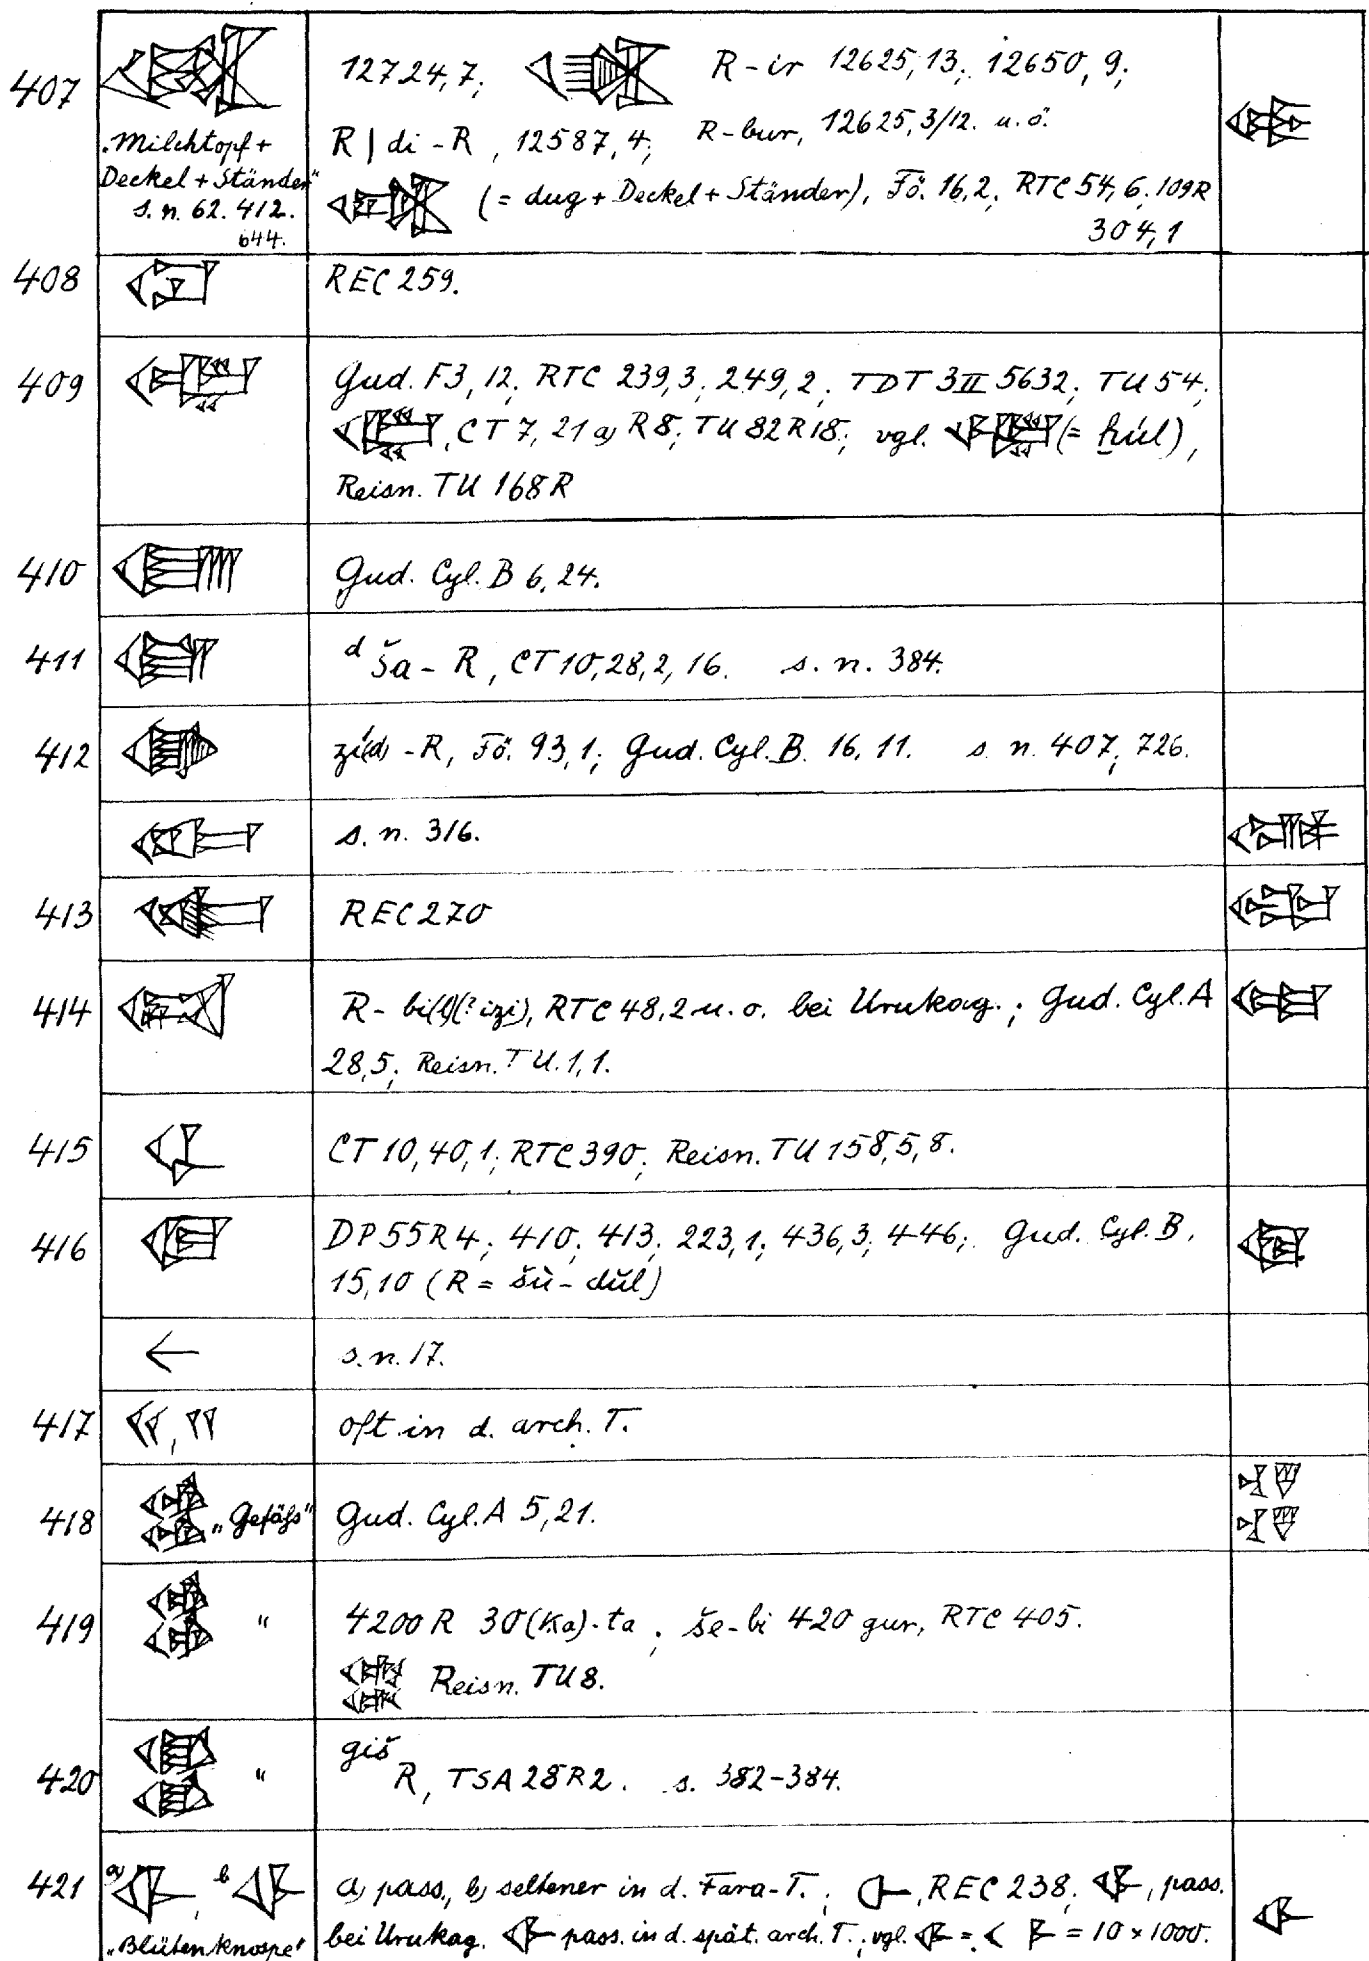 407
12724,7; R-ir 12625,13; 12650,9;
„Milchtopf +
Deckel + Ständer“
s. n. 62. 412.
644.
R | di-R, 12587,4; R-bur, 12625,3/12. u. ö.
(= dug + Deckel + Ständer), Fö. 16,2; RTC 54,6; 109R
304,1
408 REC 259.
409 Gud. F3,12; RTC 239,3; 249,2; TDT 3 II 5632; TU 54;
, CT 7, 21 a) R8; TU 82 R18; vgl. (= ḫúl),
Reisn. TU 168 R
410 Gud. Cyl. B 6,24.
411 ᵈša-R, CT 10,28,2,16. s. n. 384.
412 zí(d)-R, Fö. 93,1; Gud. Cyl. B. 16,11. s. n. 407; 726.
s. n. 316.
413 REC 270
414 R-bi(l)(? izi), RTC 48,2 u. o. bei Urukag.; Gud. Cyl. A
28,5; Reisn. TU. 1,1.
415 CT 10,40,1; RTC 390; Reisn. TU 158,5,8.
416 DP 55 R 4; 410; 413; 223,1; 436,3; 446; Gud. Cyl. B,
15,10 (R = šù-dŭl)
s. n. 17.
417 oft in d. arch. T.
418 „Gefäfs“ Gud. Cyl. A 5,21.
419 “ 4200 R 30(Ka)-ta; še-bi 420 gur, RTC 405.
Reisn. TU 8.
420 “ giš R, TSA 28 R2. s. 382-384.
421 a) , b a) pass., b) seltener in d. Fara-T.; , REC 238; , pass.
„Blütenknospe“ bei Urukag. pass. in d. spät. arch. T.; vgl. = = 10 × 1000.